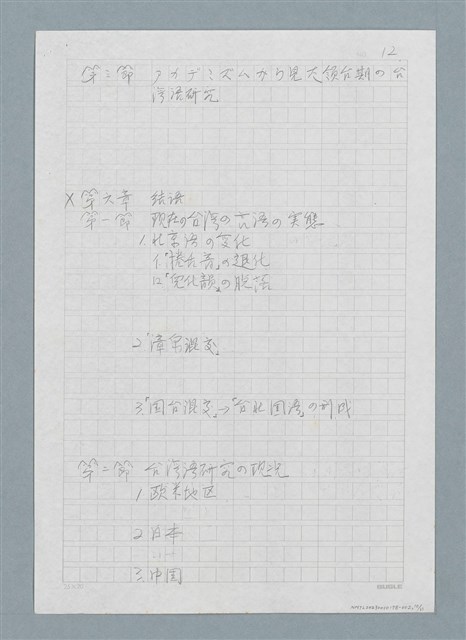 12
第三節 アカデミズムから見た領台期の台
湾語研究
X 第六章 結語
第一節 現在の台湾の言語の実態
1. 北京語の変化
イ「捲舌音」の退化
ロ「児化韻」の脱落
2「漳泉混交」
3.「国台混交」→「台北国語」の形成
第二節 台湾語研究の現況
1 欧米地区
2 日本
3. 中国